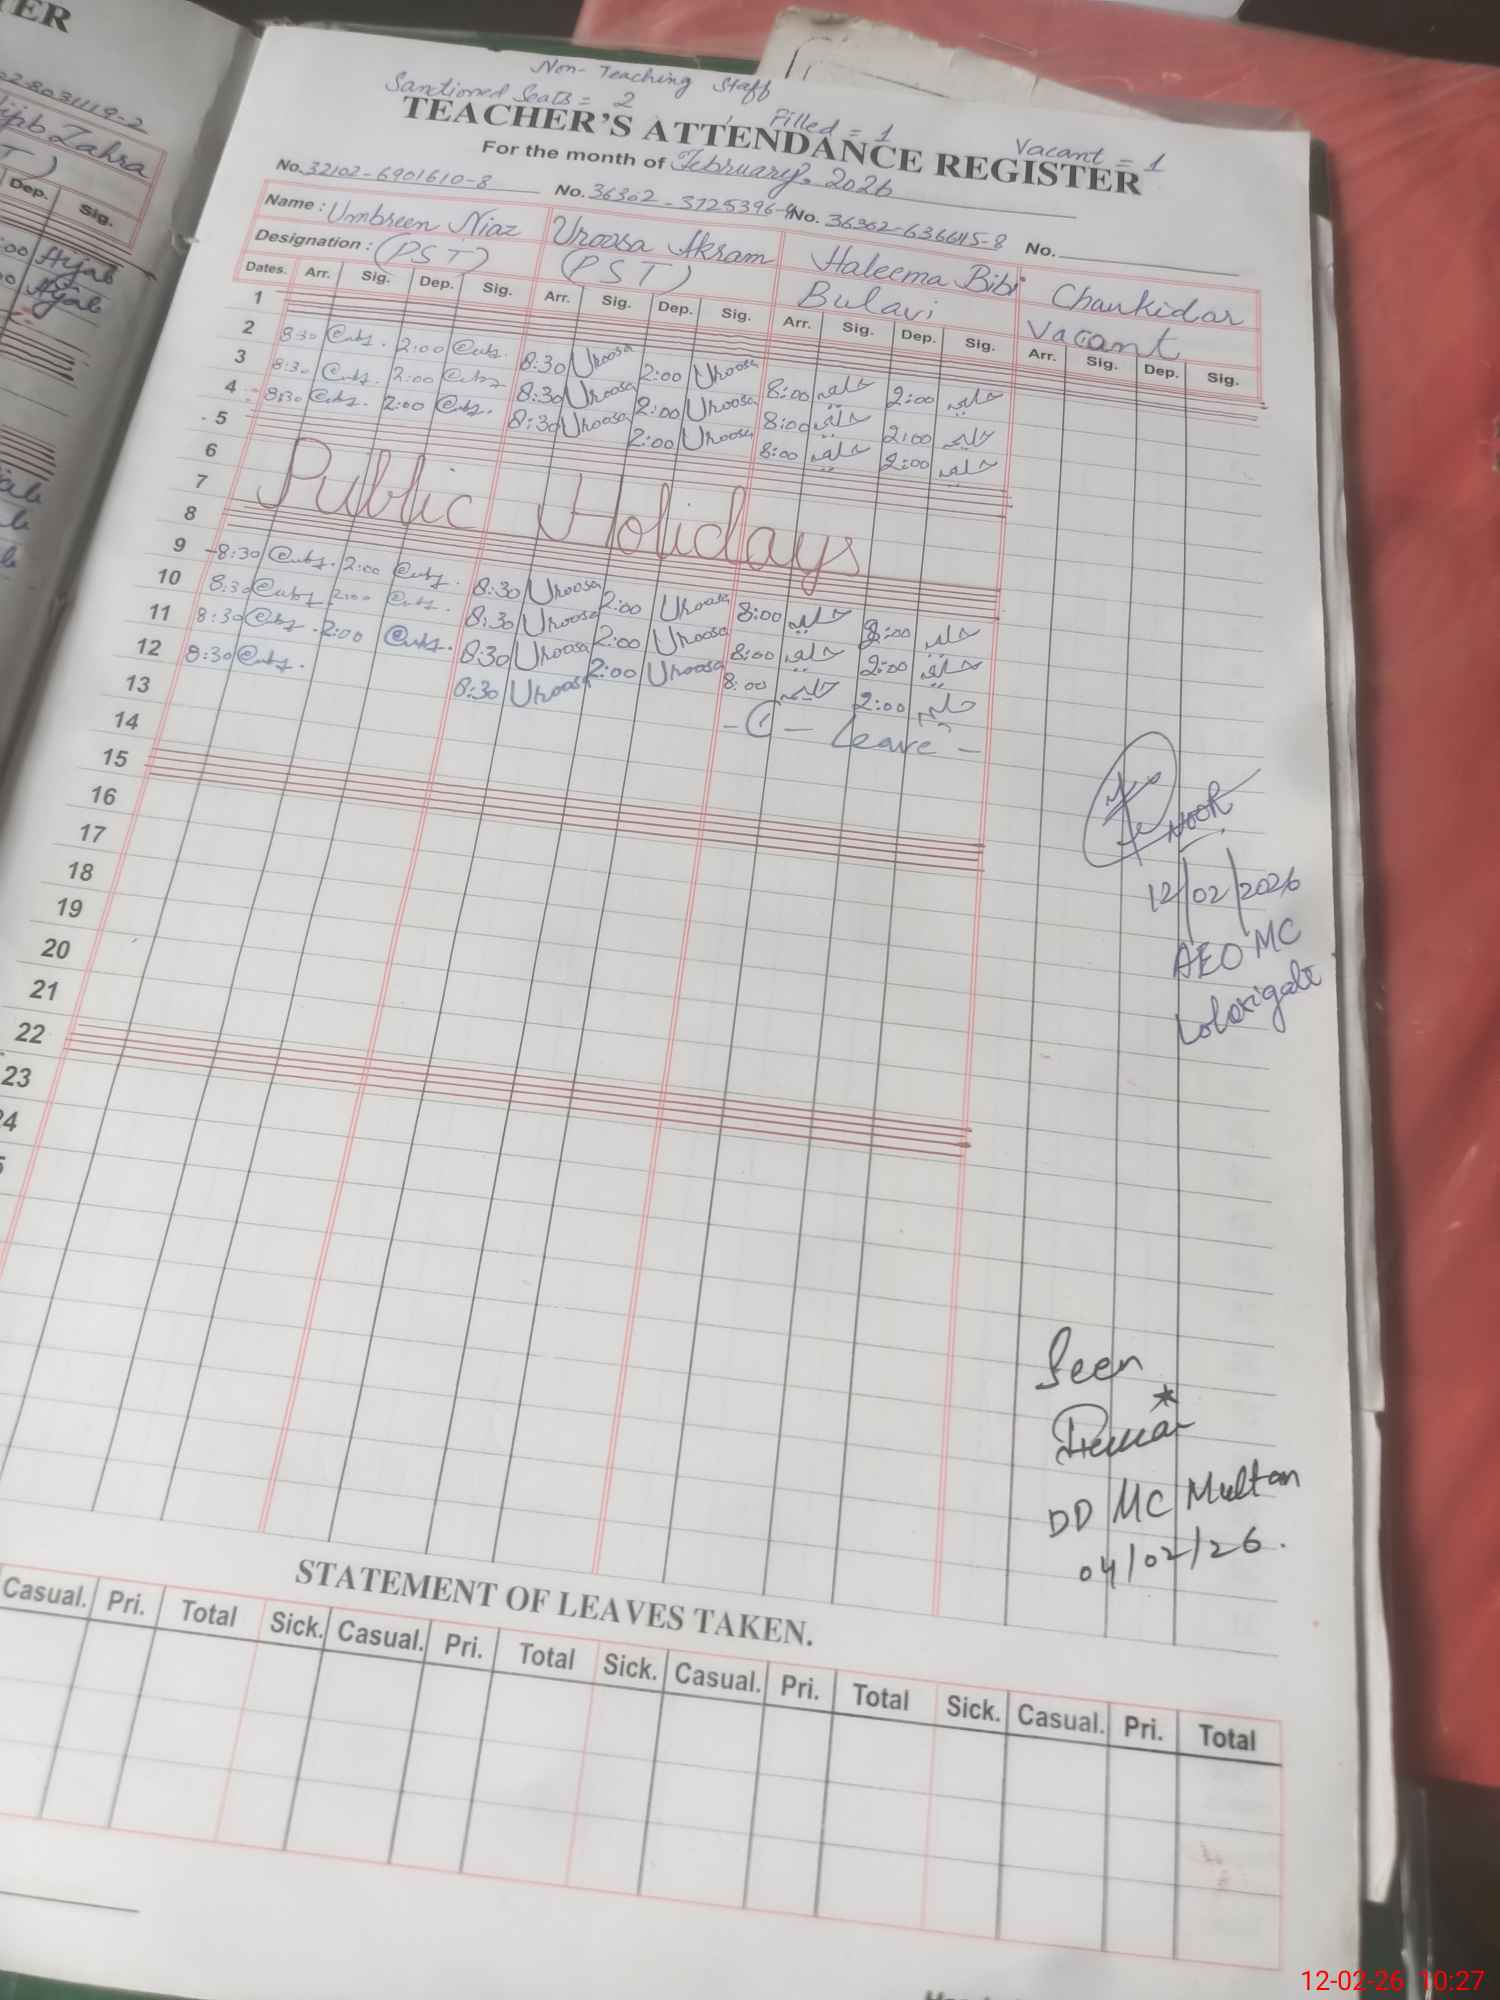 TER
803119-2
Zahra
Dep. Sig.
Non-Teaching Staff
Sanctioned Seats = 2 Filled = 1 Vacant = 1
TEACHER'S ATTENDANCE REGISTER
For the month of February, 2026
No. 32102-6901610-8 No. 36302-5725396- No. 36302-636615-8 No.
Name : Umbreen Niaz Uroosa Akram Haleema Bibi Chaukidar
Designation : (PST) (PST) Bulavi Vacant
Dates. Arr. Sig. Dep. Sig. Arr. Sig. Dep. Sig. Arr. Sig. Dep. Sig. Arr. Sig. Dep. Sig.
1
2 8:30 2:00 8:30 Uroosa 2:00 Uroosa 8:00 2:00
3 8:30 2:00 8:30 Uroosa 2:00 Uroosa 8:00 2:00
4 8:30 2:00 8:30 Uroosa 2:00 Uroosa 8:00 2:00
5
6 Public Holidays
7
8
9 8:30 2:00 8:30 Uroosa 2:00 Uroosa 8:00 2:00
10 8:30 2:00 8:30 Uroosa 2:00 Uroosa 8:00 2:00
11 8:30 2:00 8:30 Uroosa 2:00 Uroosa 8:00 2:00
12 8:30 8:30 Uroosa Leave
13
14
15
16
17
18
19
20
21
22
23
24
NOOR
12/02/2026
AEO MC
Seen
DD MC Multan
04/02/26.
STATEMENT OF LEAVES TAKEN.
Casual. Pri. Total Sick. Casual. Pri. Total Sick. Casual. Pri. Total Sick. Casual. Pri. Total
12-02-26 10:27